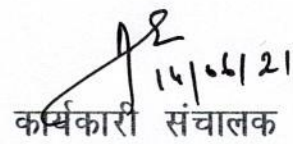 14/06/21
कार्यकारी संचालक